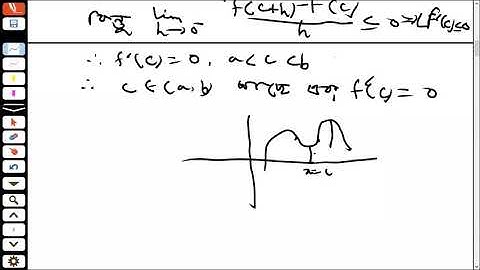 lim h→0⁻ f(c+h)-f(c)/h ≤ 0 ⇒ Lf'(c)≤0
∴ f'(c) = 0, a < c < b
∴ c ∈ (a, b) f'(c) = 0
x=c